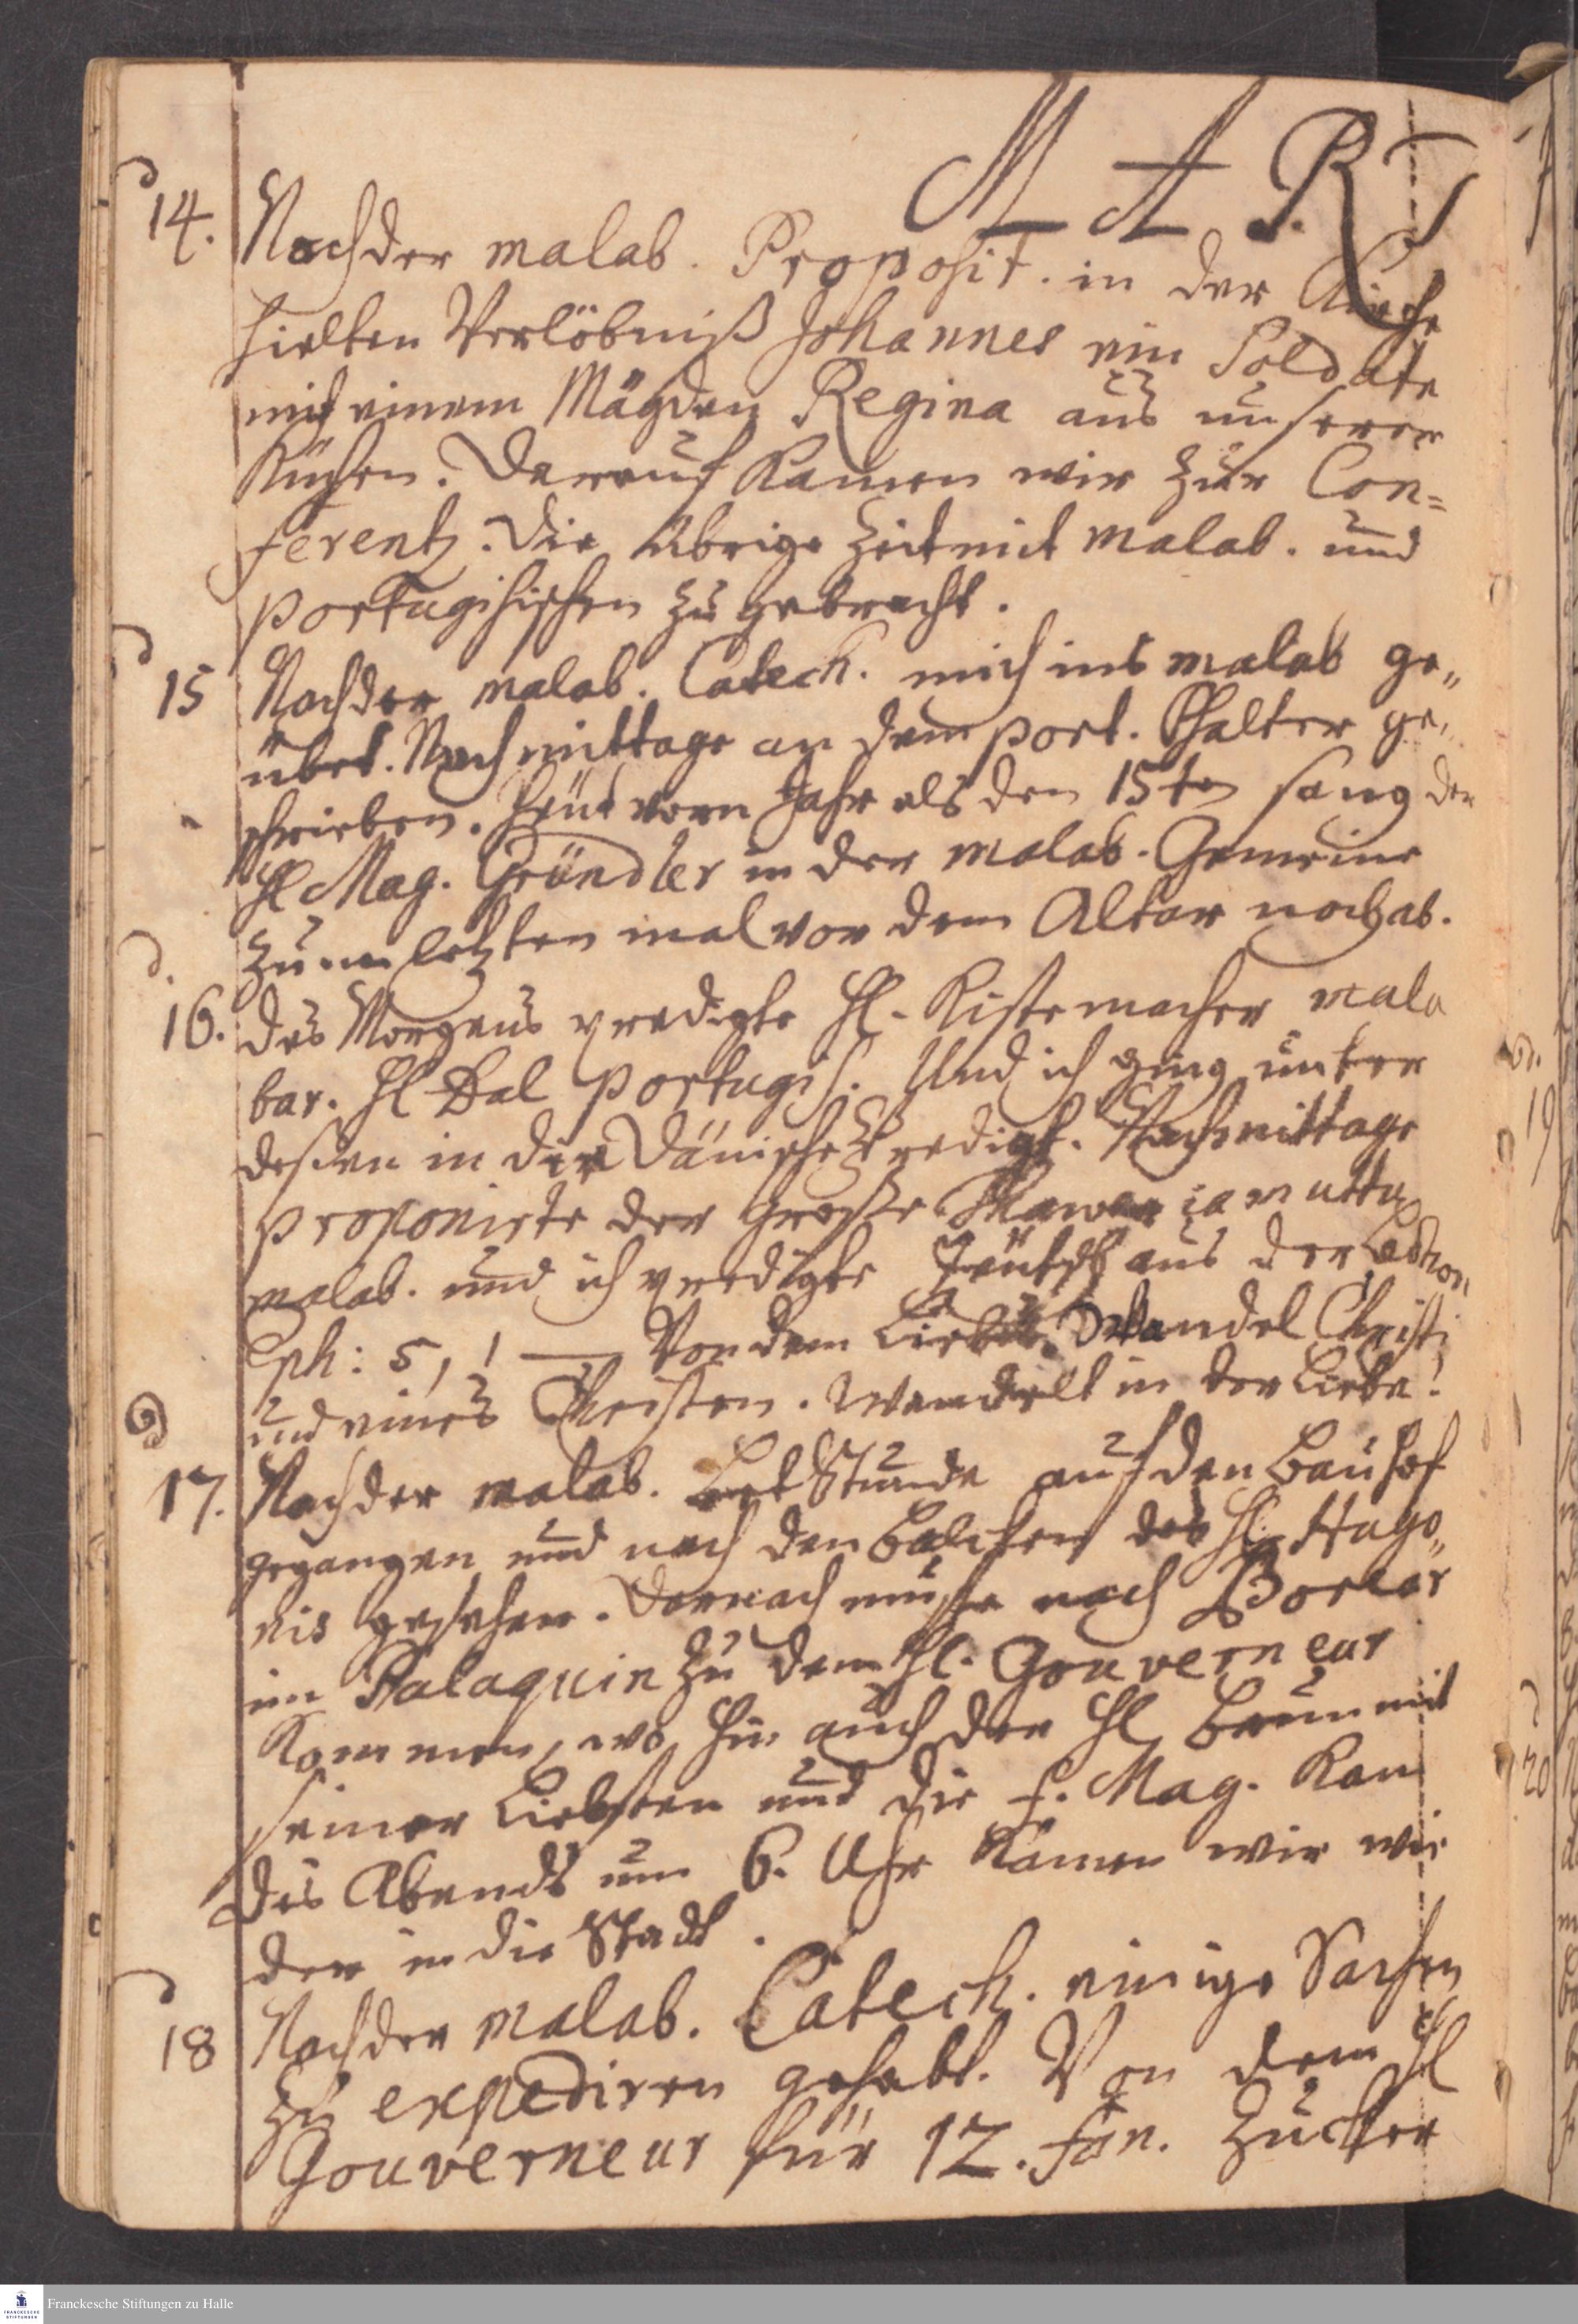 MARTJ
14. Nach der malab. Proposit. in der Kirche
hielten Verlöbniß Johannes ein Soldate
mit einem Mägden Regina aus unserer
Küchen. Darauf kamen wir zur Con=
ferentz. Die übrige Zeit mit malab. und
portugisischen zu gebracht.
15 Nach der malab. Catech. mich ins malab ge„
übet. Nachmittage an dem port. Psalter ge„
schrieben. Heut vorn Jahr als den 15ten sang der
Hl Mag. Gründler in der malab. Gemeine
zum letzten mal vor dem Altar noch ab.
16. Des Morgens predigte Hl. Kistemacher mala
bar. Hl Dal portugis. Und ich ging unter
deßen in die Dänische Predigt. Nachmittage
proponirte der große
malab. und ich predigte Teutsch aus der Lection
Eph: 5, 1 — Von dem Wandel Christi
und eines Christen. Wandelt in der Liebe!
17. Nach der malab. Betstunde auf den Bauhof
gegangen und nach den Balcken des Hl. Hugo„
nis gesehen. Darnach muste nach Poreiar
im Palaquin zu dem Hl. Gouverneur
kommen, wo hin auch der Hl Brun mit
seiner Liebsten und die f. Mag. kam
Des Abends um 6. Uhr kamen wir wie
der in die Stadt.
18 Nach der malab. Catech. einige Sachen
zu expediren gehabt. Von dem Hl
Gouverneur für 12. fan. Zucker
19
20
Franckesche Stiftungen zu Halle
FRANCKESCHE STIFTUNGEN